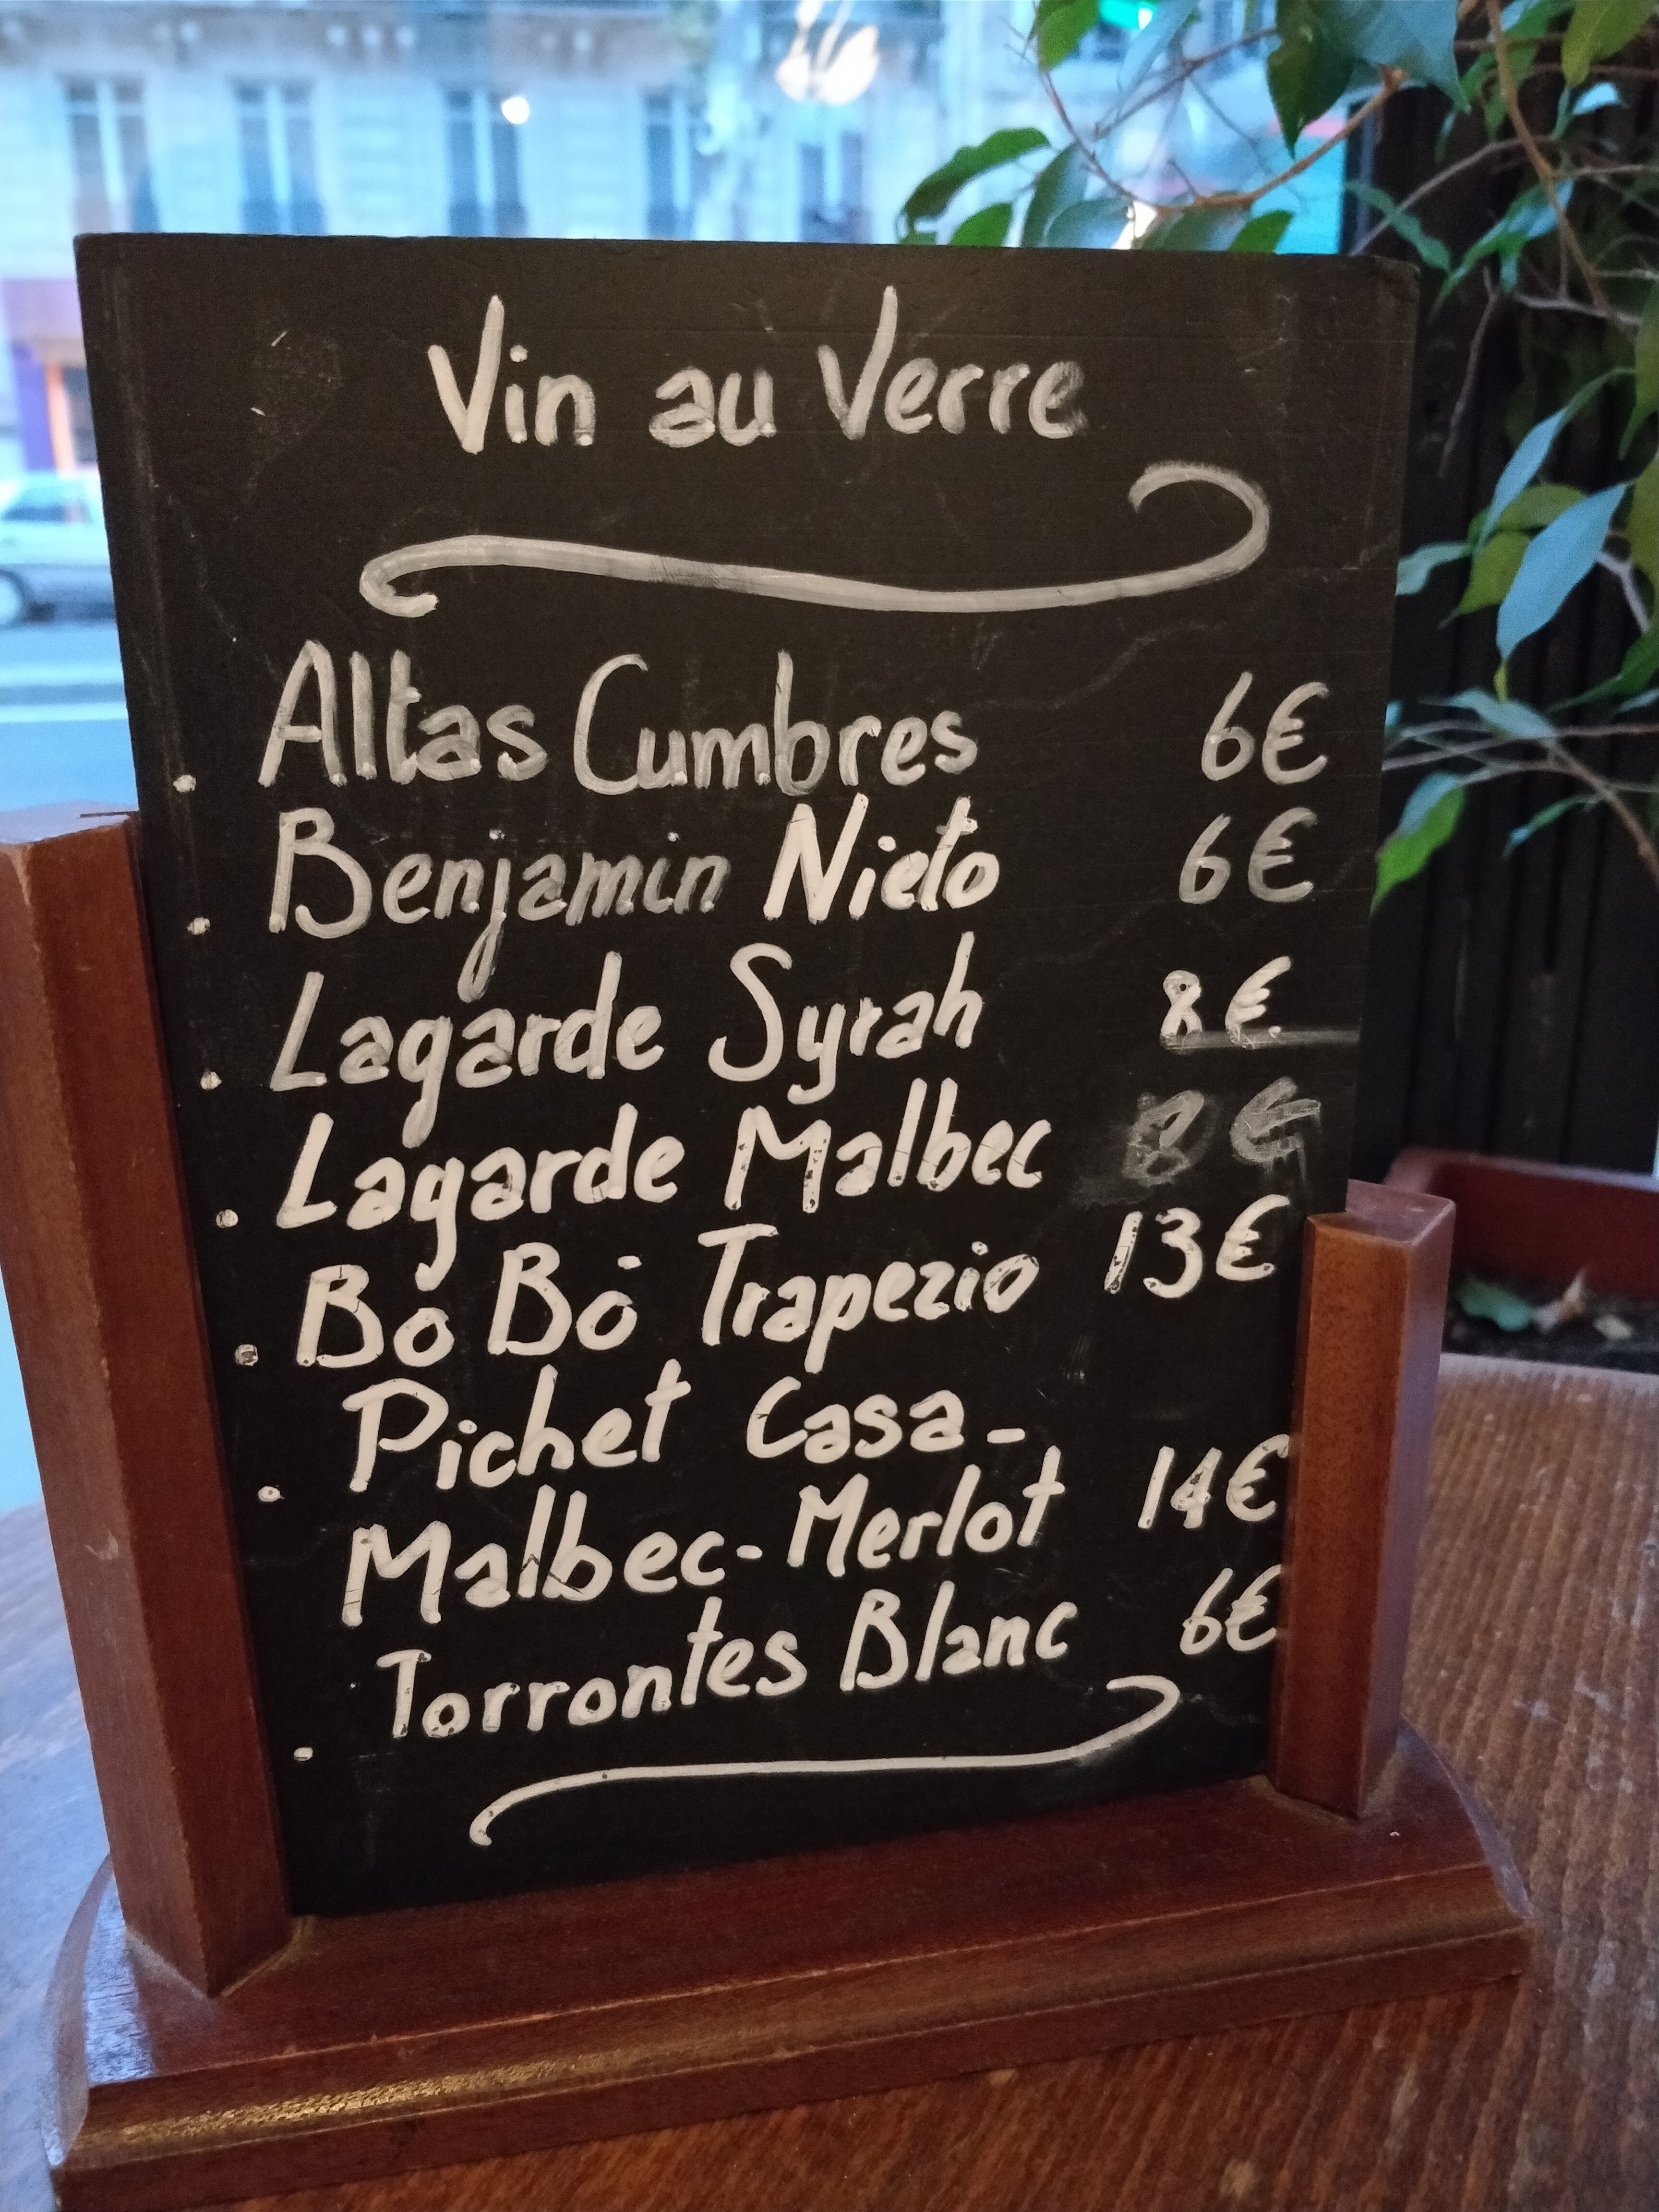 Vin au Verre
. Altas Cumbres 6€
. Benjamin Nieto 6€
. Lagarde Syrah 8€
. Lagarde Malbec 8€
. Bo Bo Trapezio 13€
. Pichet Casa-
Malbec-Merlot 14€
. Torrontes Blanc 6€